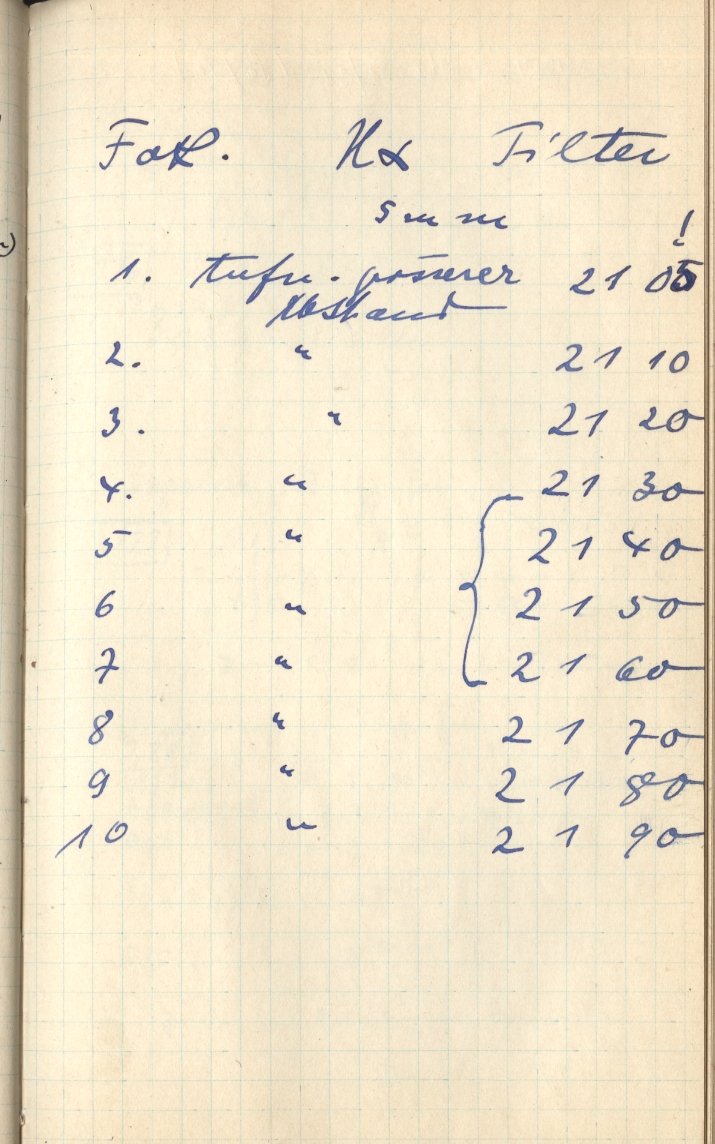 Fok. Hα Filter
5 mm
!
1. grösserer 21 05
Abstand
2. " 21 10
3. " 21 20
4. " 21 30
5 " 21 40
6 " 21 50
7 " 21 60
8 " 21 70
9 " 21 80
10 " 21 90